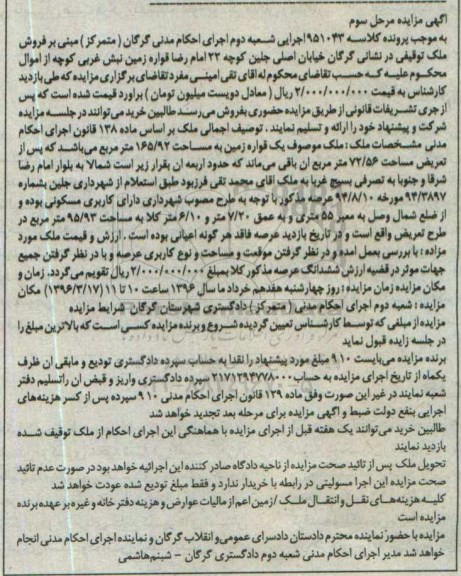 آگهی مزایده مرحل سوم
به موجب پرونده کلاسه ۹۵۱۰۴۳ اجرایی شعبه دوم اجرای احکام مدنی گرگان ( متمرکز ) مبنی بر فروش
ملک توقیفی در نشانی گرگان خیابان اصلی جلین کوچه ۲۲ امام رضا قواره زمین نبش غربی کوچه از اموال
محکوم علیه که حسب تقاضای محکوم له اقای تقی امینی مفرد تقاضای برگزاری مزایده که طی بازدید
کارشناس به قیمت ۲/۰۰۰/۰۰۰/۰۰۰ ریال ( معادل دویست میلیون تومان ) براورد قیمت شده است که پس
از جری تشریفات قانونی از طریق مزایده حضوری بفروش می رسد طالبین خرید می توانند در جلسه مزایده
شرکت و پیشنهاد خود را ارائه و تسلیم نمایند . توصیف اجمالی ملک بر اساس ماده ۱۳۸ قانون اجرای احکام
مدنی مشخصات ملک : ملک موصوف یک قواره زمین به مساحت ۱۶۵/۹۲ متر مربع می باشد که پس از
تعریض مساحت ۷۲/۵۶ متر مربع ان باقی می ماند که حدود اربعه ان بقرار زیر است شمالا به بلوار امام رضا
شرقا و جنوبا به تصرفی بسیج غربا به ملک اقای محمد تقی فرزبود طبق استعلام از شهرداری جلین بشماره
۹۴/۳۸۹۷ مورخه ۹۴/۸/۱۰ عرصه مذکور با توجه به طرح مصوب شهرداری دارای کاربری مسکونی بوده و
از ضلع شمال وصل به معبر ۵۵ متری و به عمق ۷/۲۰ متر و ۶/۱۰ متر کلا به مساحت ۹۵/۹۳ متر مربع در
طرح تعریض واقع است و در تاریخ بازدید عرصه فاقد هر گونه اعیانی بوده است . ارزش و قیمت ملک مورد
مزاده : با بررسی بعمل امده و در نظر گرفتن موقعت و مساحت و نوع کاربری عرصه و با در نظر گرفتن جمیع
جهات موثر در قضیه ارزش ششدانگ عرصه مذکور کلا بمبلغ ۲/۰۰۰/۰۰۰/۰۰۰ ریال تقویم می گردد. زمان و
مکان مزایده زمان مزایده : روز چهارشنبه هفدهم خرداد ما سال ۱۳۹۶ ساعت ۱۰ تا ۱۱ (۱۳۹۶/۳/۱۷) مکان
مزایده : شعبه دوم اجرای احکام مدنی ( متمرکز ) دادگستری شهرستان گرگان شرایط مزایده
مزایده از مبلغی که توسط کارشناس تعیین گردیده شروع و برنده مزایده کسی است که بالاترین مبلغ را
در جلسه زایده قبول نماید
برنده مزایده می بایست ۱۰ ٩ مبلغ مورد پیشنهاد را نقدا به حساب سپرده دادگستری تودیع و مابقی ان ظرف
یکماه از تاریخ اجرای مزایده به حساب ۲۱۷۱۲۹۴۷۷۸۰۰۰ سپرده دادگستری واریز و قبض ان راتسلیم دفتر
شعبه نمایند در غیر این صورت وفق ماده ۱۲۹ قانون اجرای احکام مدنی ۱۰ ٩ سپرده پس از کسر هزینه های
اجرایی بنفع دولت ضبط و اگهی مزایده برای مرحله بعد تجدید خواهد شد
طالبین خرید می توانند یک هفته قبل از اجرای مزایده با هماهنگی این اجرای احکام از ملک توقیف شده
بازدید نمایند
تحویل ملک پس از تائید صحت مزایده از ناحیه دادگاه صادر کننده این اجرائیه خواهد بود در صورت عدم تائید
صحت مزایده این اجرا مسولیتی در رابطه با خریدار ندارد و فقط مبلغ تودیع شده عودت خواهد شد
کلیه هزینه های نقل و انتقال ملک /زمین اعم از مالیات عوارض و هزینه دفتر خانه و غیره بر عهده برنده
مزایده است
مزایده با حضور نماینده محترم دادستان دادسرای عمومی و انقلاب گرگان و نماینده اجرای احکام مدنی انجام
خواهد شد مدیر اجرای احکام مدنی شعبه دوم دادگستری گرگان – شبنم هاشمی